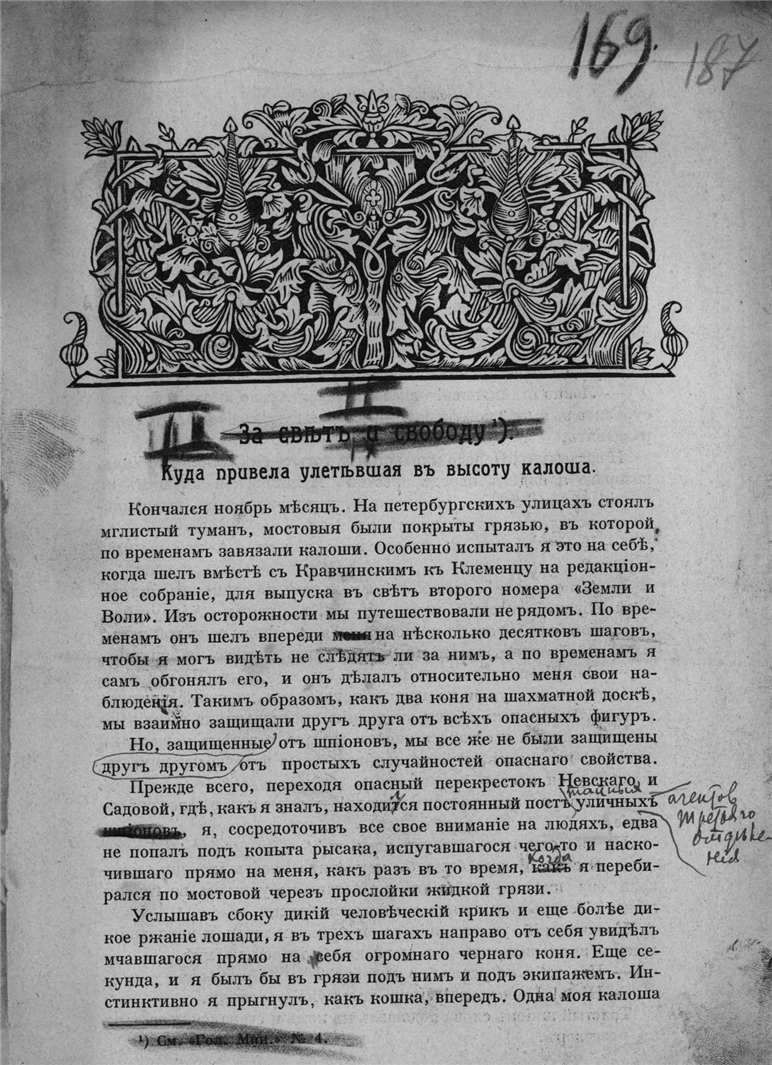 169. 187
II
III За свѣтъ и свободу ¹).
Куда привела улетѣвшая въ высоту калоша.
Кончался ноябрь мѣсяцъ. На петербургскихъ улицахъ стоялъ
мглистый туманъ, мостовыя были покрыты грязью, въ которой
по временамъ завязали калоши. Особенно испыталъ я это на себѣ,
когда шелъ вмѣстѣ съ Кравчинскимъ къ Клеменцу на редакціон-
ное собраніе, для выпуска въ свѣтъ второго номера «Земли и
Воли». Изъ осторожности мы путешествовали не рядомъ. По вре-
менамъ онъ шелъ впереди меня на нѣсколько десятковъ шаговъ,
чтобы я могъ видѣть не слѣдятъ ли за нимъ, а по временамъ я
самъ обгонялъ его, и онъ дѣлалъ относительно меня свои на-
блюденія. Такимъ образомъ, какъ два коня на шахматной доскѣ,
мы взаимно защищали другъ друга отъ всѣхъ опасныхъ фигуръ.
Но, защищенные отъ шпіоновъ, мы все же не были защищены
другъ другомъ отъ простыхъ случайностей опаснаго свойства.
Прежде всего, переходя опасный перекрестокъ Невскаго и
тайныхъ
Садовой, гдѣ, какъ я зналъ, находится постоянный постъ уличныхъ агентов
третьяго
отдѣле-
нія
шпіоновъ, я, сосредоточивъ все свое вниманіе на людяхъ, едва
не попалъ подъ копыта рысака, испугавшагося чего-то и наско-
когда
чившаго прямо на меня, какъ разъ въ то время, какъ я переби-
рался по мостовой черезъ прослойки жидкой грязи.
Услышавъ сбоку дикій человѣческій крикъ и еще болѣе ди-
кое ржаніе лошади, я въ трехъ шагахъ направо отъ себя увидѣлъ
мчавшагося прямо на себя огромнаго чернаго коня. Еще се-
кунда, и я былъ бы въ грязи подъ нимъ и подъ экипажемъ. Ин-
стинктивно я прыгнулъ, какъ кошка, впередъ. Одна моя калоша
¹) См. «Гол. Мин.» № 4.